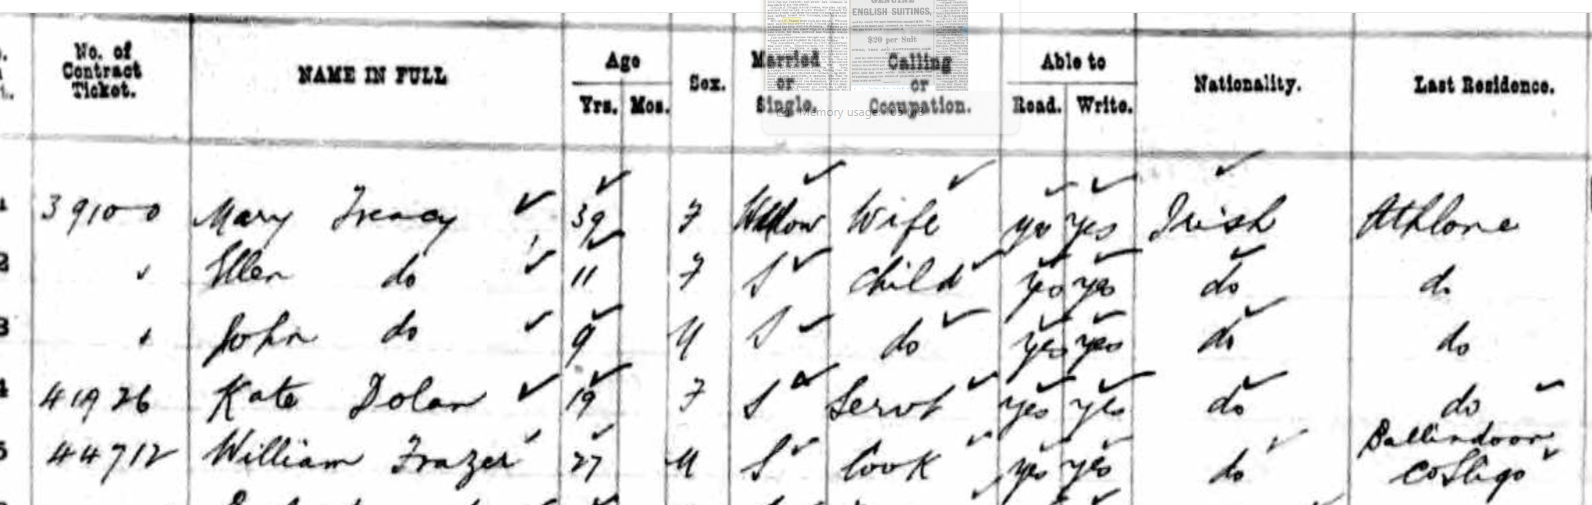 ENGLISH SUITINGS,
$20 per Suit
No. of Contract Ticket. NAME IN FULL Age Yrs. Mos. Sex. Married or Single. Calling or Occupation. Able to Read. Write. Nationality. Last Residence.
Memory usage:
1 39100 Mary Treacy 39 F Wife yes yes Irish Athlone
2 " Ellen do 11 F S Child yes yes do do
3 " John do 9 M S do yes yes do do
4 41976 Kate Dolan 19 F S Servt yes yes do do
5 44712 William Frazer 27 M S Cook yes yes do Ballindoon
Co Sligo